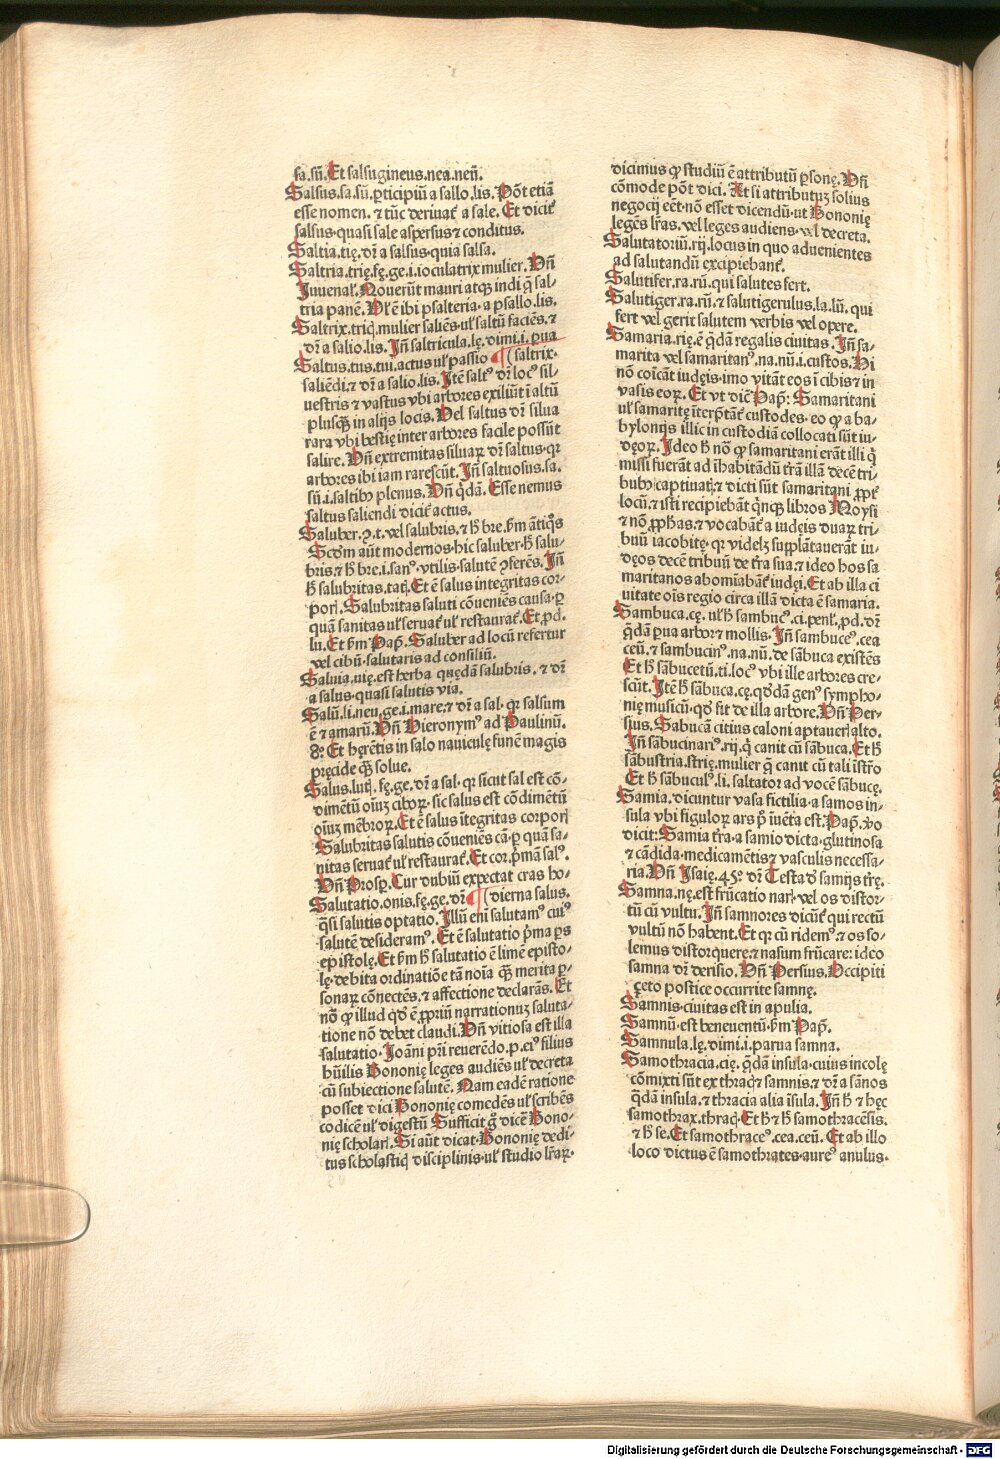 sa.sũ. Et salsugineus.nea.neũ.
Salsus.sa.sũ.ꝑticipiũ a sallo.lis. Põt etiã
esse nomen. ⁊ tũc deriuat᷑ a sale. Et dicit᷑
salsus·quasi sale aspersus ⁊ conditus.
Saltia.tię.dr̃ a salsus·quia salsa.
Saltria.trię.fę.ge.i.ioculatrix mulier. Vñ
Juuenal᷑. Nouerũt mauri atqꝫ indi q̃ sal-
tria panẽ. Vl᷑ ẽ ibi psalteria·a psallo.lis.
Saltrix.triꝗ.mulier saliẽs·ul᷑ saltũ faciẽs.⁊
dr̃ a salio.lis. Jñ saltricula.lę.dimi.i.ꝑua
Saltus.tus.tui.actus ul᷑ passio ¶ (saltrix.
saliẽdi.⁊ dr̃ a salio.lis. Jtẽ saltꝰ dr̃ locꝰ sil-
uestris ⁊ vastus vbi arbores exiliũt ĩ altũ
plusq̃ in alijs locis. Vel saltus dr̃ silua
rara vbi bestię inter arbores facile possũt
salire. Vñ extremitas siluaꝝ dr̃ saltus·qꝛ
arbores ibi iam rarescũt. Jñ saltuosus.sa.
sũ.i.saltibꝰ plenus. Vñ q̃dã. Esse nemus
saltus saliendi dicit᷑ actus.
Saluber.ꝯ.t.vel salubris.⁊ h̃ bre.ẞm ãtiq̃s
Scďm aũt modernos·hic saluber·h̃ salu-
bris·⁊ h̃ bre.i.sanꝰ·vtilis·salutẽ ꝯferẽs. Jñ
h̃ salubritas.tatꝭ. Et ẽ salus integritas cor-
porꝭ. Salubritas saluti cõueniẽs causa·ꝑ
quã sanitas ul᷑ seruat᷑ ul᷑ restaurat᷑. Et.ꝓd.
lu. Et ẞm Pap̃. Saluber ad locũ refertur
vel cibũ·salutaris ad consiliũ.
Saluia.uię.est herba quędã salubris.⁊ dr̃
a salus·quasi salutis via.
Salũ.li.neu.ge.i.mare.⁊ dr̃ a sal·qꝛ salsum
ẽ ⁊ amarũ. Vñ Hieronymꝰ ad Paulinũ.
8º: Et hęrẽtis in salo nauiculę funẽ magis
pręcide q̃ solue.
Salus.lutꝭ.fę.ge.dr̃ a sal·qꝛ sicut sal est cõ-
dimẽtũ oĩuꝫ ciboꝝ·sic salus est cõdimẽtũ
oĩuꝫ mẽbroꝝ. Et ẽ salus ĩtegritas corporꝭ
Salubritas salutis cõueniẽs cã·ꝑ quã sa-
nitas seruat᷑ ul᷑ restaurat᷑. Et cor.p̃mã salꝰ.
Vñ Prosp̃. Cur dubiũ expectat cras ho-
Salutatio.onis.fę.ge.dr̃ ¶ (dierna salus.
q̃si salutis optatio. Jllũ eni salutamꝰ cuiꝰ
salutẽ desideramꝰ. Et ẽ salutatio p̃ma ꝑs
epistolę. Et ẞm h̃ salutatio ẽ limẽ episto-
lę·debita ordinatiõe tã noĩa q̃ merita ꝑ-
sonaꝝ cõnectẽs.⁊ affectione declarãs. Et
nõ ꝙ illud qď ẽ ꝓpriũ narrationuꝫ saluta-
tione nõ debet claudi. Vñ vitiosa est illa
salutatio· Joãni pr̃i reuerẽdo.p.eiꝰ filius
hũilis Bononię leges audiẽs ul᷑ decreta
cũ subiectione salutẽ. Nam eadẽ ratione
posset dici Bononię comedẽs ul᷑ scribẽs
codicẽ ul᷑ digestũ Sufficit g̃ dicẽ Bono-
nię scholarꝭ. Si aũt dicat· Bononię dedi-
tus scholastiꝗ disciplinis·ul᷑ studio lr̃aꝝ·
dicimus ꝙ studiũ ẽ attributũ ꝑsonę. Vñ
cõmode põt dici. At si attributuꝫ solius
negocij eẽt·nõ esset dicendũ·ut Bononię
legẽs lr̃as·vel leges audiens·vel decreta.
Salutatoriũ.rij.locus in quo aduenientes
ad salutandũ excipiebant᷑.
Salutifer.ra.rũ.qui salutes fert.
Salutiger.ra.rũ.⁊ salutigerulus.la.lũ. qui
fert vel gerit salutem verbis vel opere.
Samaria.rię.ẽ q̃dã regalis ciuitas. Jñ sa-
marita vel samaritanꝰ.na.nũ.i.custos. Hi
nõ coĩcãt iudęis·imo vitãt eos ĩ cibis ⁊ in
vasis eoꝝ. Et vt dic̃ Pap̃: Samaritani
ul᷑ samaritę ĩterp̃tãt᷑ custodes·eo ꝙ a ba-
bylonijs illic in custodiã collocati sũt iu-
dęoꝝ. Jdeo h̃ nõ ꝙ samaritani erãt illi q̃
missi fuerãt ad ĩhabitãdũ tr̃ã illã decẽ tri-
bubꝰ captiuatꝭ.⁊ dicti sũt samaritani ꝓpt᷑
locũ.⁊ isti recipiebãt q̃nqꝫ libros Moysi
⁊ nõ ꝓphãs.⁊ vocabãt᷑ a iudęis duaꝝ tri-
buũ iacobitę·qꝛ videlꝫ supplãtauerãt iu-
dęos decẽ tribuũ de tr̃a sua.⁊ ideo hos sa
maritanos abominabãt᷑ iudęi. Et ab illa ci
uitate oĩs regio circa illã dicta ẽ samaria.
Sambuca.cę. ul᷑ h̃ sambucꝰ.ci.penl᷑.ꝓd.dr̃
q̃dã ꝑua arbor ⁊ mollis. Jñ sambuceꝰ.cea
ceũ.⁊ sambucinꝰ.na.nũ.de sãbuca existẽs
Et h̃ sãbucetũ.ti.locꝰ vbi ille arbores cre-
scũt. Jtẽ h̃ sãbuca.cę.qďdã genꝰ sympho-
nię musicũ·qď fit de illa arbore. Vñ Per-
sius. Sabucã citius caloni aptauerꝭ alto.
Jñ sãbucinariꝰ.rij.q̃ canit cũ sãbuca. Et h̃
sãbustria.strię.mulier q̃ canit cũ tali ĩstr̃o
Et h̃ sãbuculꝰ.li.saltator ad vocẽ sãbucę.
Samia.dicuntur vasa fictilia·a samos in-
sula vbi figuloꝝ ars p̃ iuẽta est. Pap̃.ṽo
dicit: Samia tr̃a·a samio dicta·glutinosa
⁊ cãdida·medicamẽtis ⁊ vasculis necessa-
ria. Vñ Jsaię.45º dr̃ Testa ď samijs tr̃ę.
Samna.nę.est frũcatio narꝭ vel os distor-
tũ cũ vultu. Jñ samnores dicũt᷑ qui rectũ
vultũ nõ habent. Et qꝛ cũ ridemꝰ.⁊ os so-
lemus distorquere.⁊ nasum frũcare: ideo
samna dr̃ derisio. Vñ Persius. Occipiti
cęto postice occurrite samnę.
Samnis·ciuitas est in apulia.
Samnũ·est beneuentũ·ẞm Pap̃.
Samnula.lę.dimi.i.parua samna.
Samothracia.cię.q̃dã insula·cuius incolę
cõmixti sũt ex thraꝗ ⁊ samnis.⁊ dr̃ a sãnos
q̃dã insula.⁊ thracia alia ĩsula. Jñ h̃ ⁊ hęc
samothrax.thraꝗ· Et h̃ ⁊ h̃ samothracẽsis.
⁊ h̃ se. Et samothraceꝰ.cea.ceũ. Et ab illo
loco dictus ẽ samothrates·aureꝰ anulus.
Digitalisierung gefördert durch die Deutsche Forschungsgemeinschaft - DFG